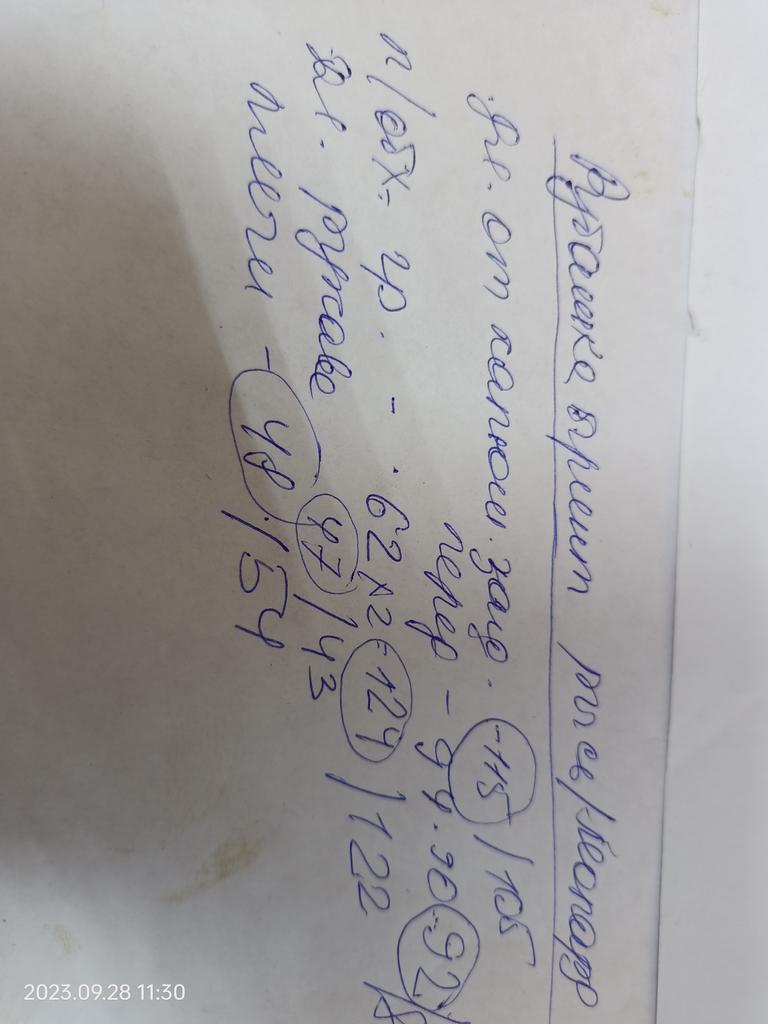 Рубашка принт рысь/леопард
Дл. от капюш. зад. - 115 / 105
перед - 94.90 - 92 /
п/обх. гр. - 62x2 = 124 / 122
Дл. рукава 47 / 43
плечи - 48 / 54
2023.09.28 11:30